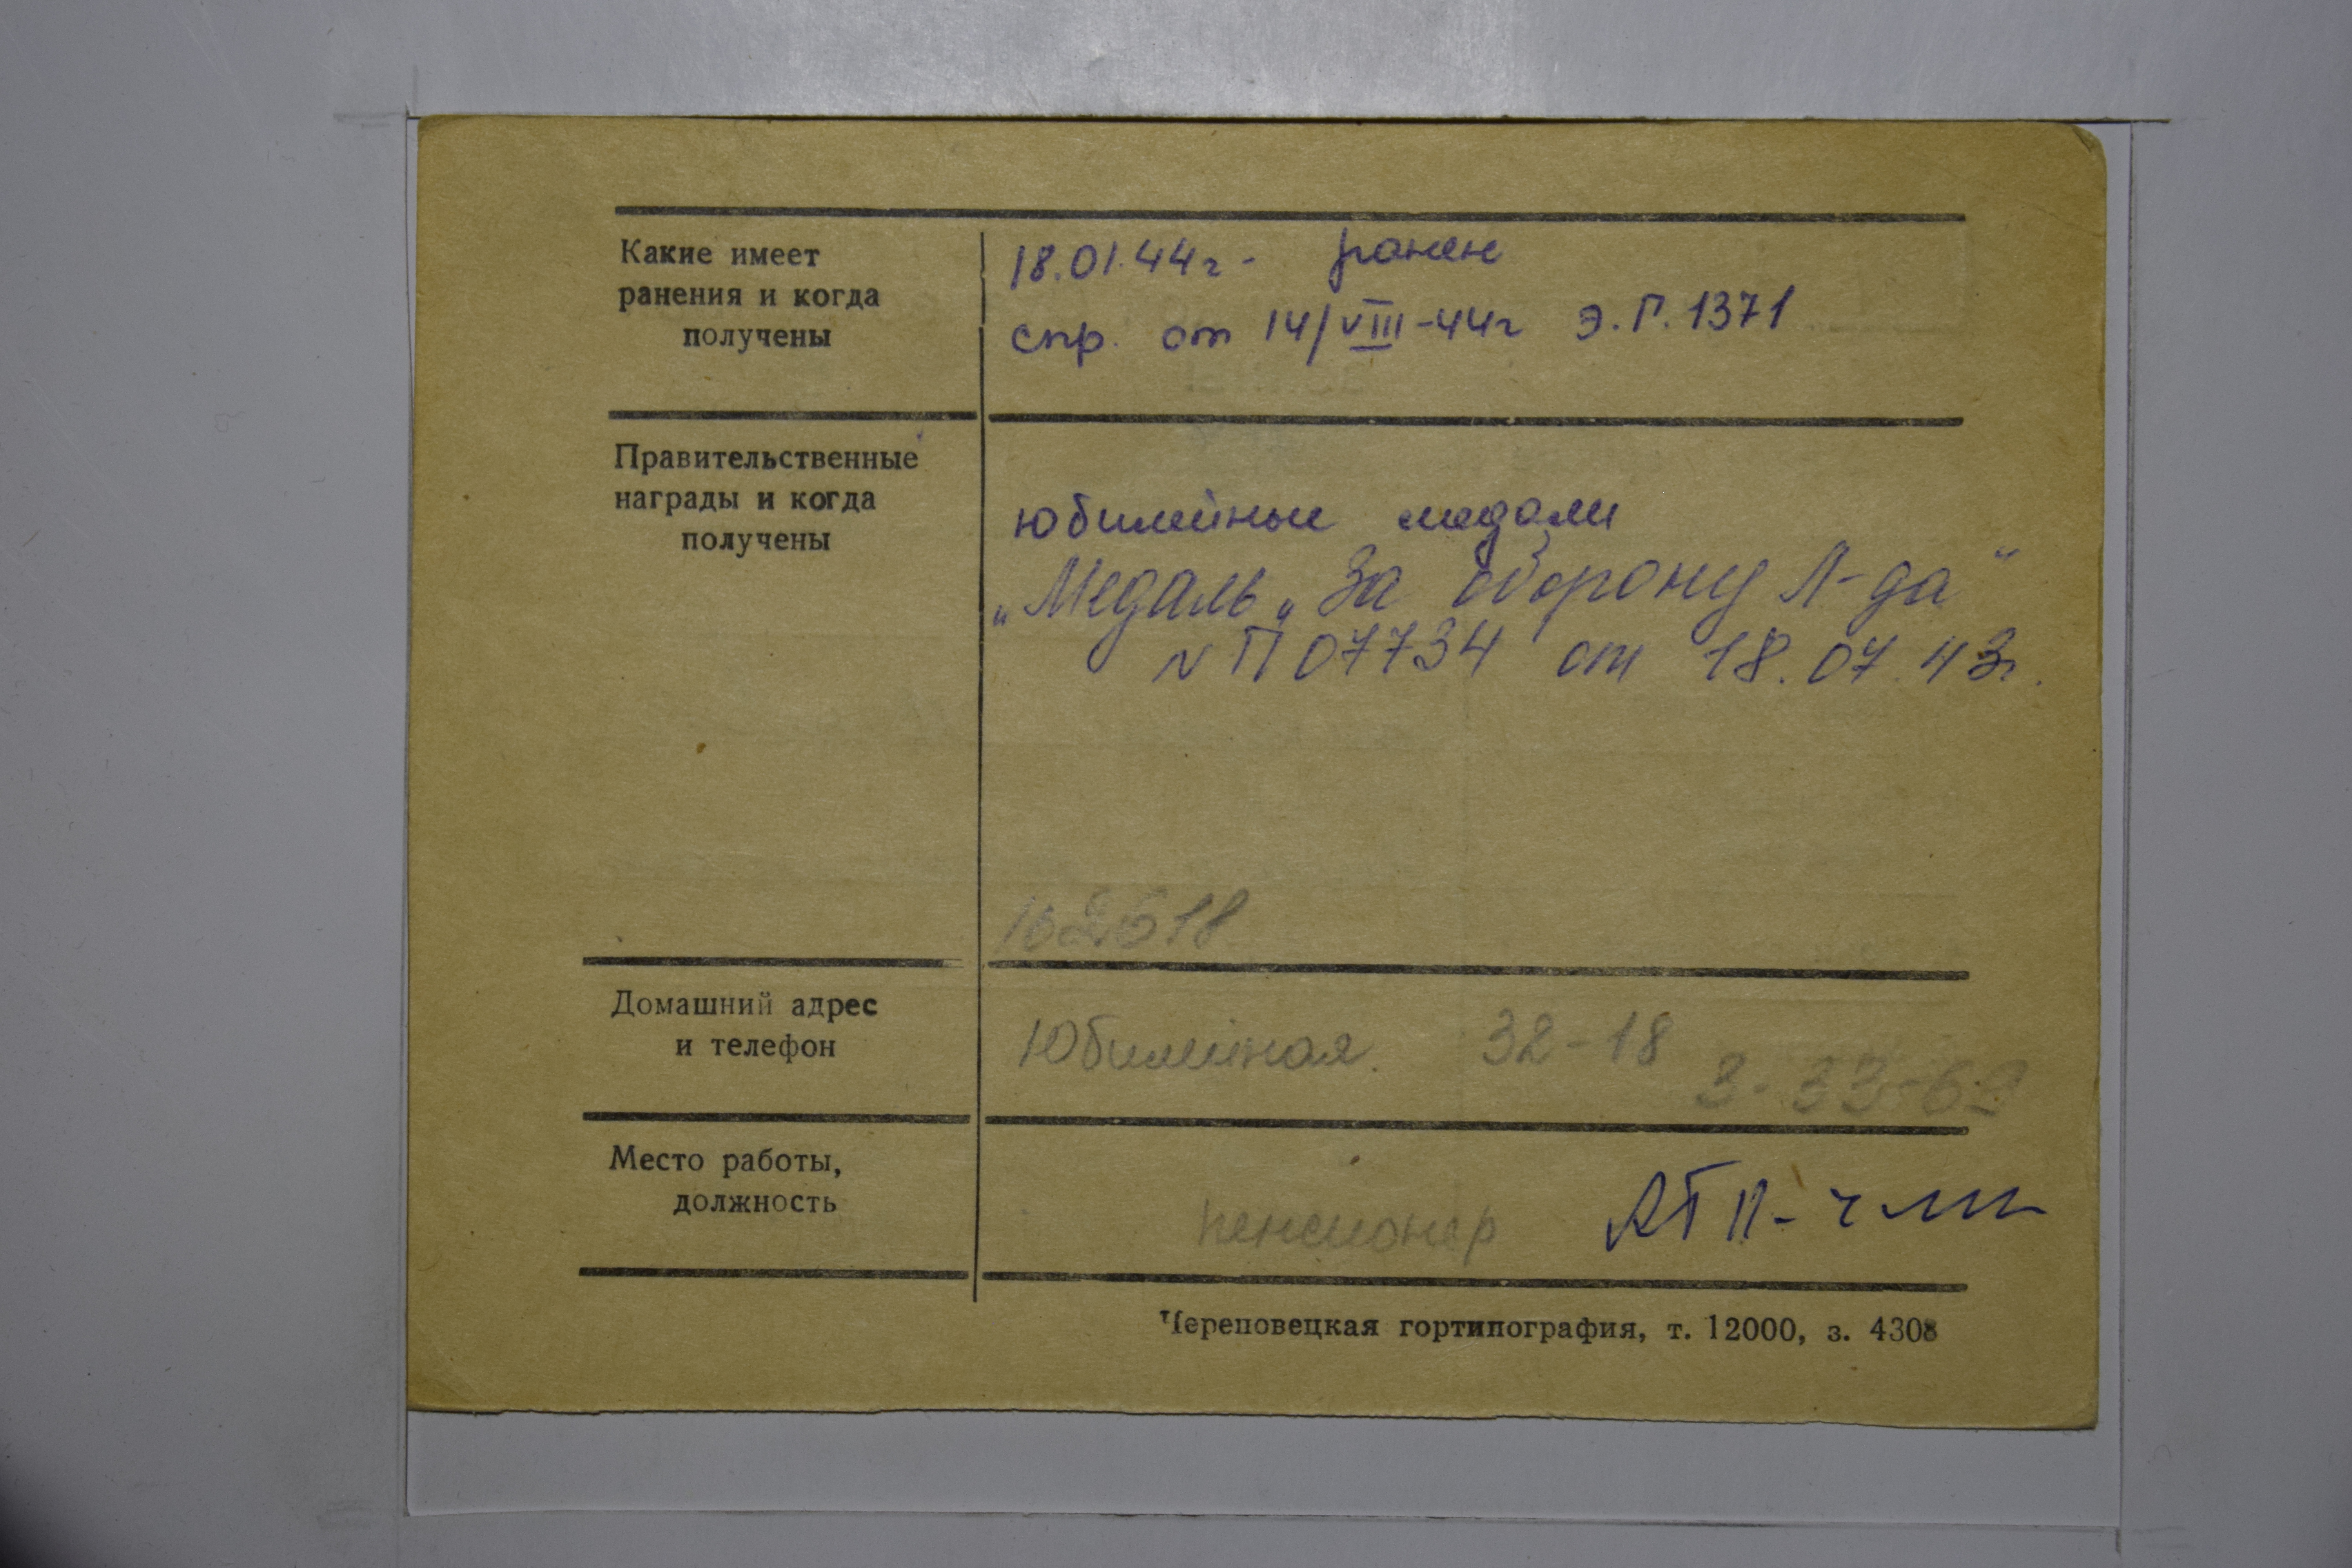 Какие имеет
ранения и когда
получены
18.01.44г - ранен
спр. от 14/VIII-44г Э.Г. 1371
Правительственные
награды и когда
получены
юбилейные медали
„Медаль „За оборону Л-да"
N П 07734 от 18.07.43г.
162518
Домашний адрес
и телефон
Юбилейная. 32-18
3-33-69
Место работы,
должность
пенсионер АТП-
Череповецкая гортипография, т. 12000, з. 4308